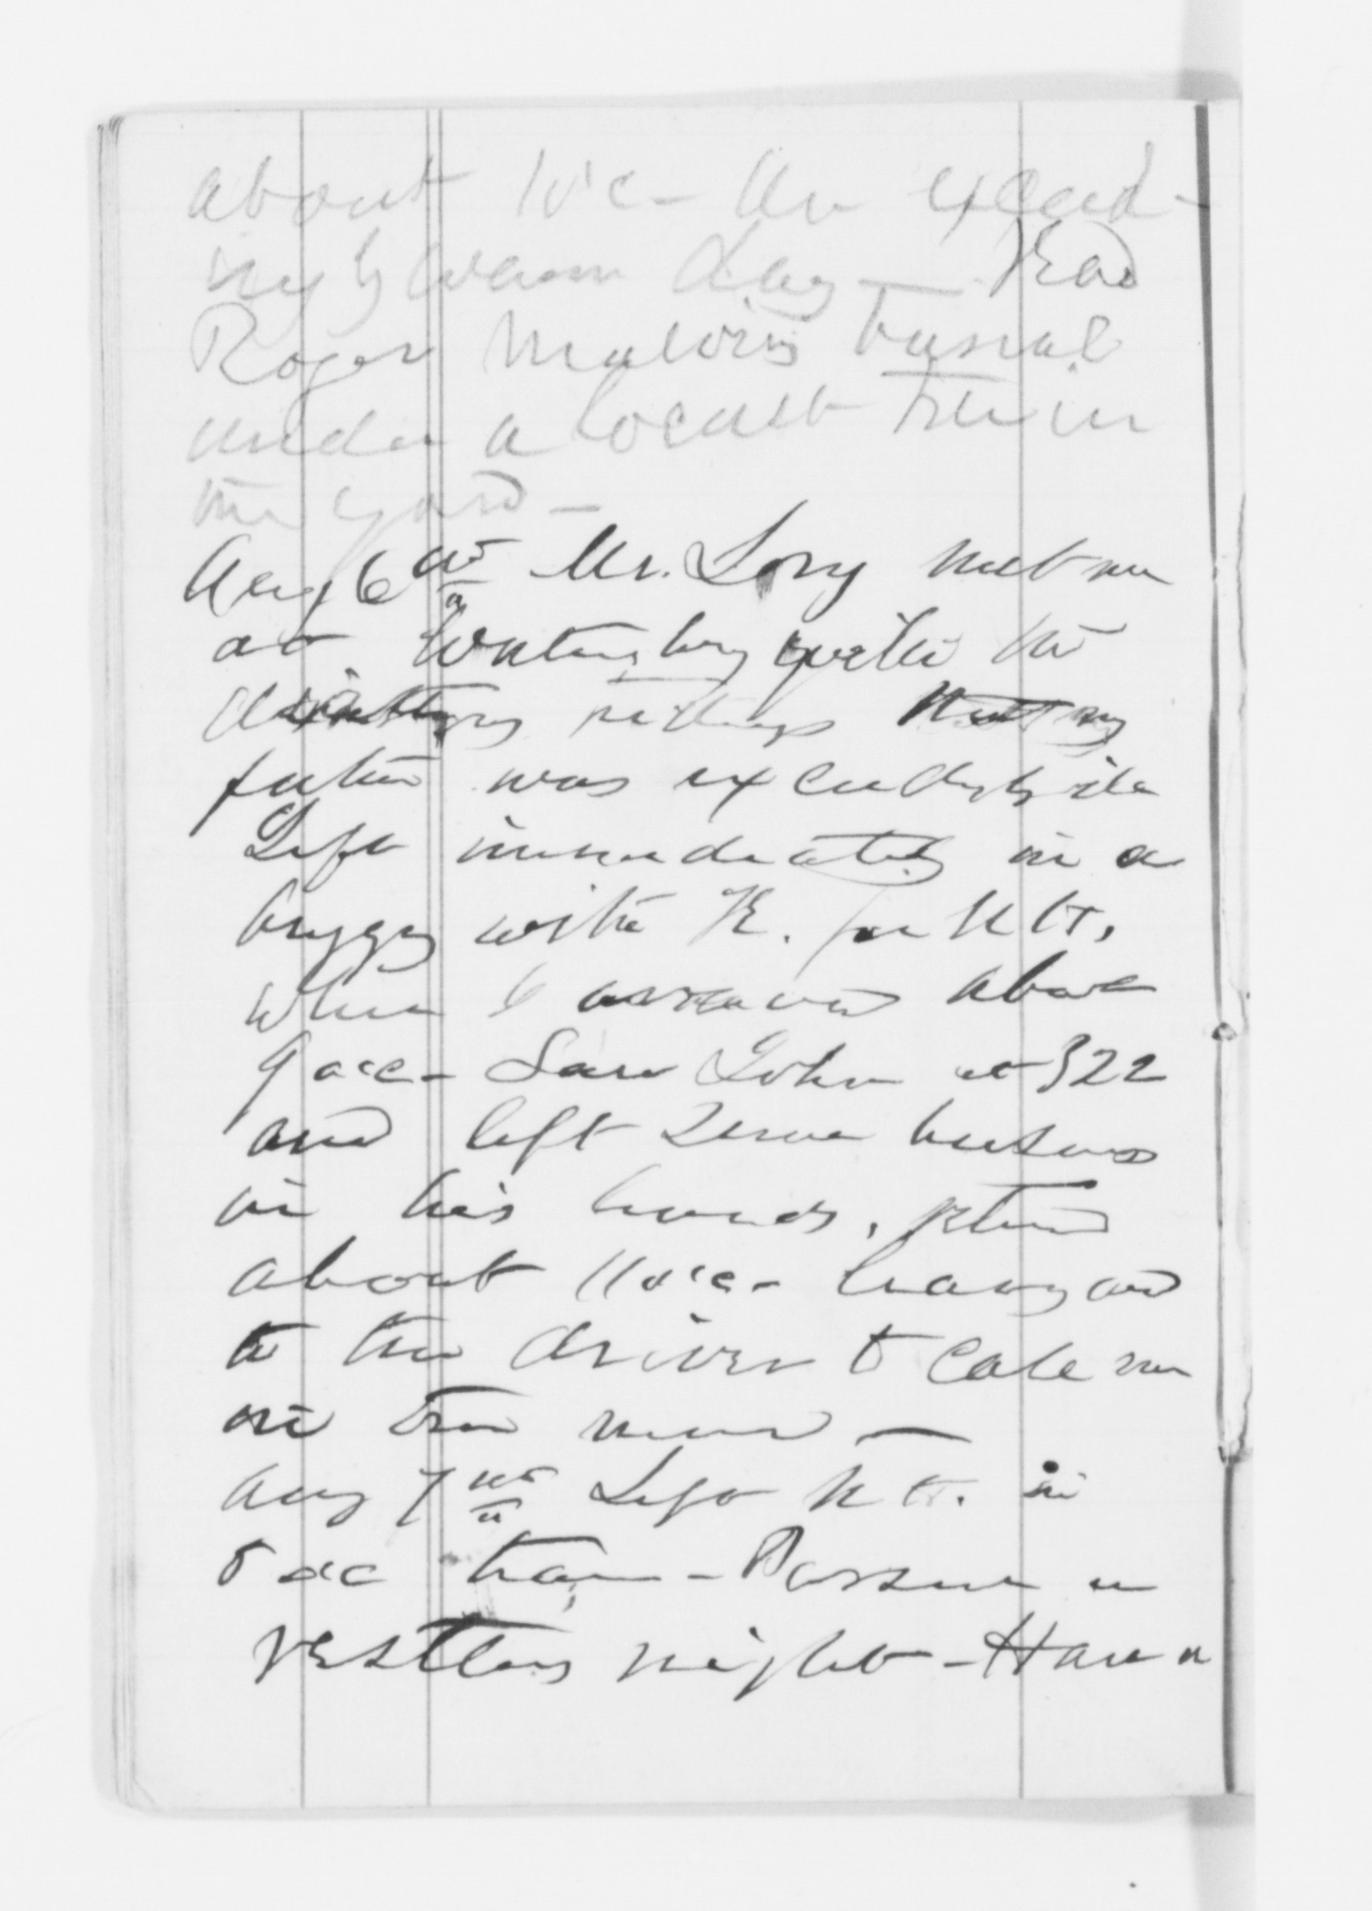 about 10 'c - An exceed-
ingly warm day - Read
Roger Malvin's burial
under a locust tree in
the yard -
Aug 6th Mr. Lovy met me
at Waterbury with the
tidings that my
father was exceedingly ill
Left immediately in a
buggy with K. for N H.
where I arrived about
9 o'c - Saw John at 322
and left some business
in his hands, retired
about 11 o'c - having
to the driver to call me
in the
Aug 7th Left N H. in
5 oc train - Passed a
restless night - Have a